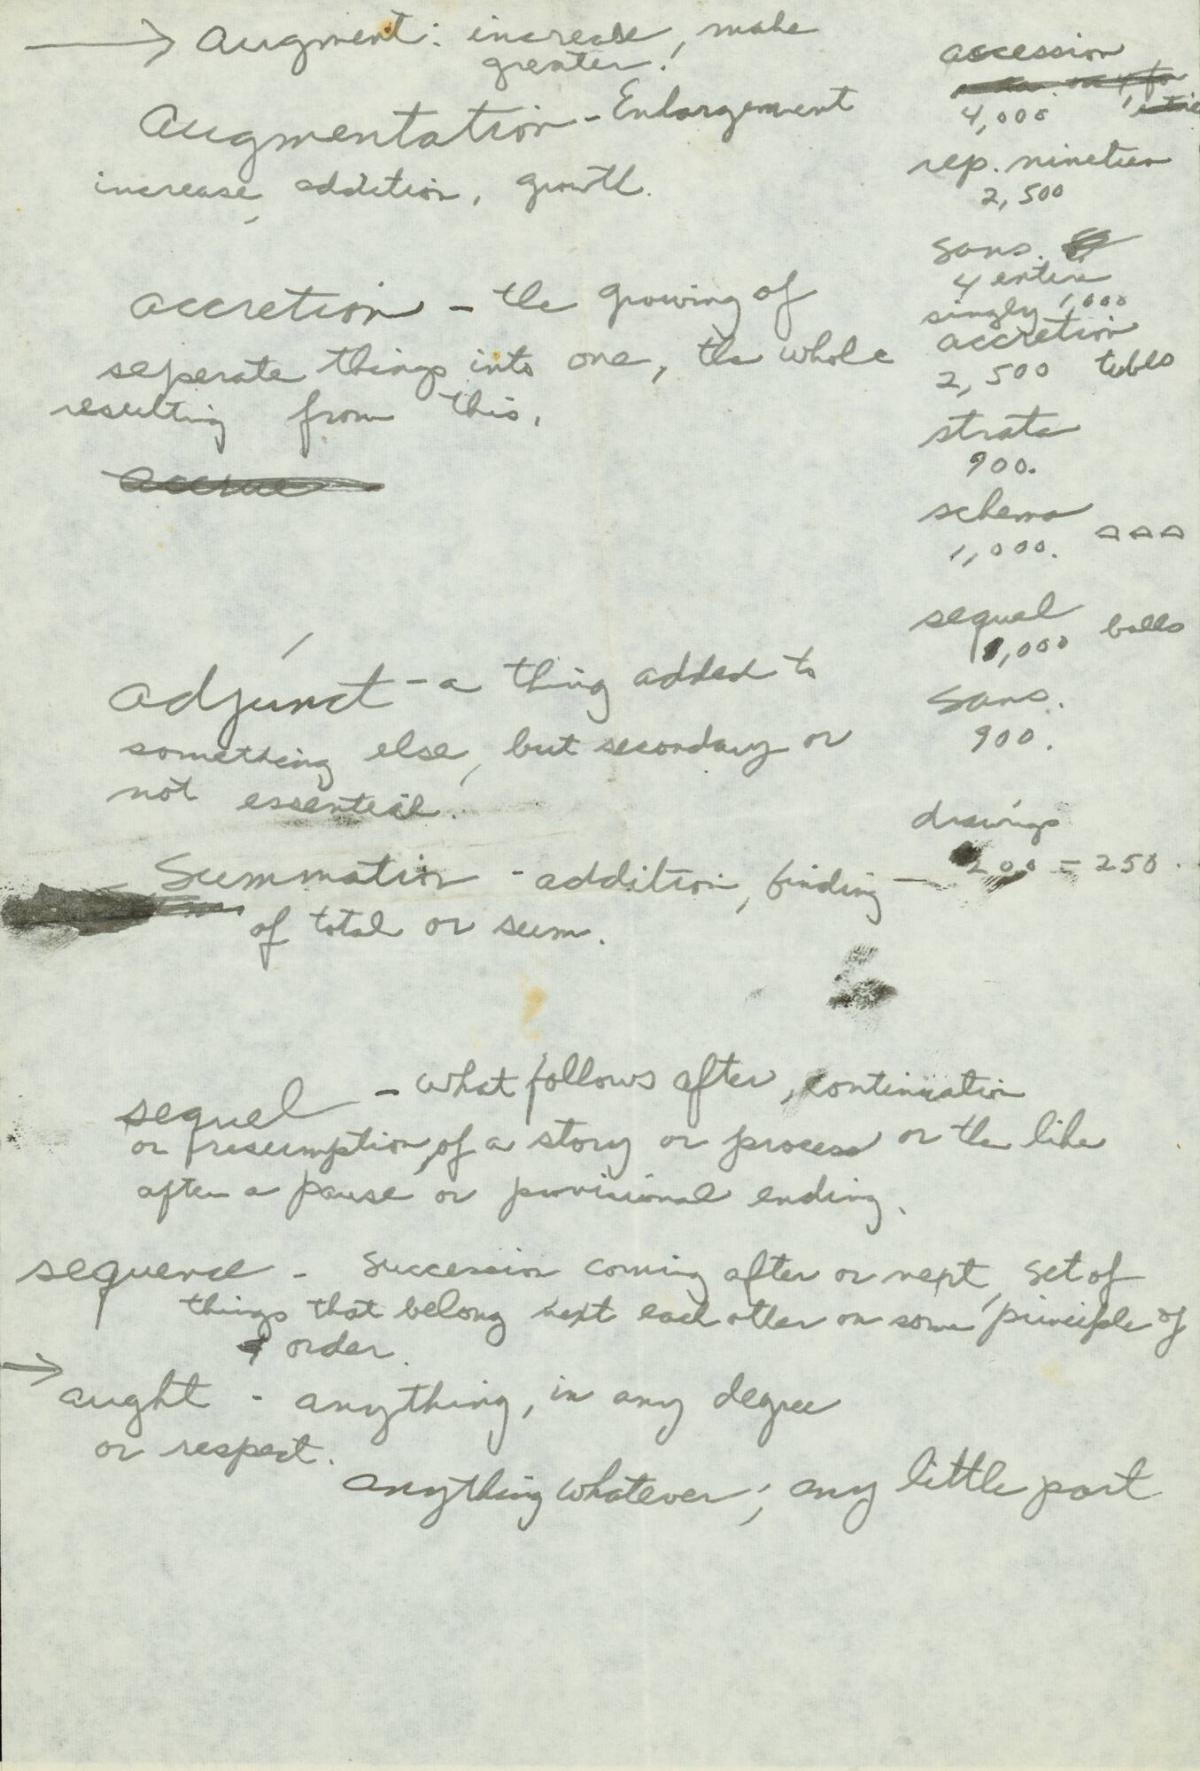 Augment: increase, make
greater.
Augmentation - Enlargement
increase, addition, growth.
accretion - the growing of
seperate things into one, the whole
resulting from this.
accrue
adjunct - a thing added to
something else, but secondary or
not essential.
Summation - addition, finding
of total or sum.
sequel - what follows after, continuation
or resumption of a story or process or the like
after a pause or provisional ending.
sequence - succession coming after or next, set of
things that belong next each other on some principle of
order.
aught - anything, in any degree
or respect.
anything whatever; any little part
accession
4,000
rep. nineteen
2,500
Sans.
4 entire
singly 1,000
accretion
2,500 tubes
strata
900.
schema
1,000.
sequel
1,000 balls
Sans.
900.
drawings
200 = 250.